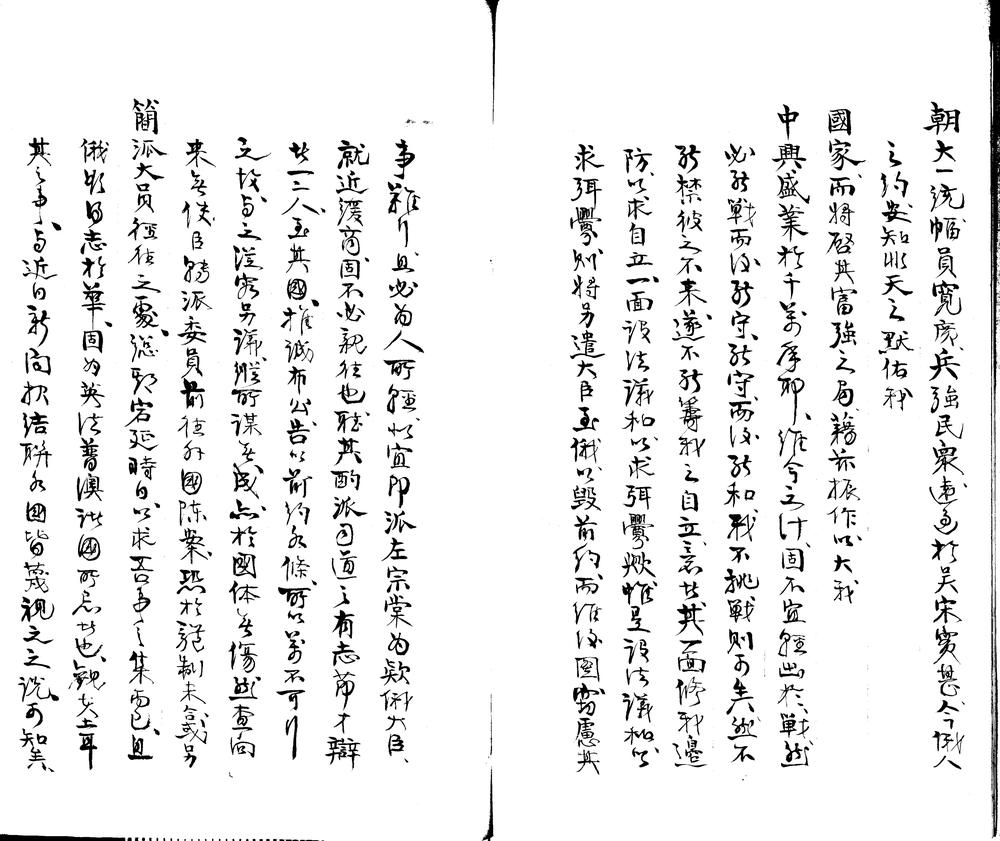 朝大一統幅員寬廣兵強民衆遠過於吴宋實甚今俄人
之約安知非天之默佑我
國家而將啓其富強之局藉茲振作以大我
中興盛業於千萬年耶維今之计固不宜輕出於戰然
必能戰而後能守能守而後能和我不挑戰則可矣然不
能禁彼之不来遂不能籌我之自立意者其一面修我邊
防以求自立一面設法議和以求弭釁歟惟是設法議和以
求弭釁則將另遣大臣至俄以毀前約而維後圖竊慮其
事難行且必為人所輕似宜即派左宗棠為欵俄大臣
就近緩商固不必親往也聽其酌派司道之有志節才辯
者一二人至其國推誠布公告以前約各條所以萬不可行
之故与之從容另議縱所謀無成点於國体無傷然查向
来無使臣轉派委員前往外國陈案恐於體制未合或另
簡派大员徑往之處總期宕延時日以求吾事之集而已且
俄欲得志於華固为英法普澳諸國所忌者也觀土耳
其之事与近日新闻报结聯各國皆蔑視之之说可知矣